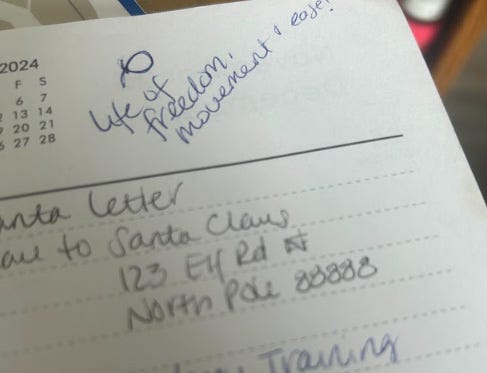 2024
F S
6 7
13 14
20 21
27 28
life of
freedom,
movement & ease!
anta letter
to Santa Claus
123 Elf Rd
North Pole 88888
Training